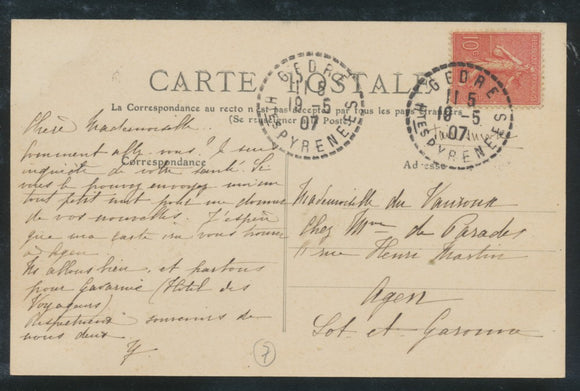 CARTE POSTALE
La Correspondance au recto n'est pas acceptée par tous les pays étrangers
(Se renseigner à la Poste)
Correspondance
Adresse
GEDRE
11 5
18 -5
07
HTES PYRENEES
GEDRE
11 5
18 -5
07
HTES PYRENEES
10
Chère Mademoiselle
Comment allez vous ? Je suis
inquiète de votre santé. Si
vous le pouvez envoyez moi un
tout petit mot pour me donner
de vos nouvelles. J'espère
que ma carte va vous trouver
à Agen
Ns allons bien, et partons
pour Gavarnie (Hotel des
Voyageurs)
souvenirs de
nous deux
Y.
Mademoiselle du
Chez Mme de Parades
11 rue Henri Martin
Agen
Lot et Garonne
7